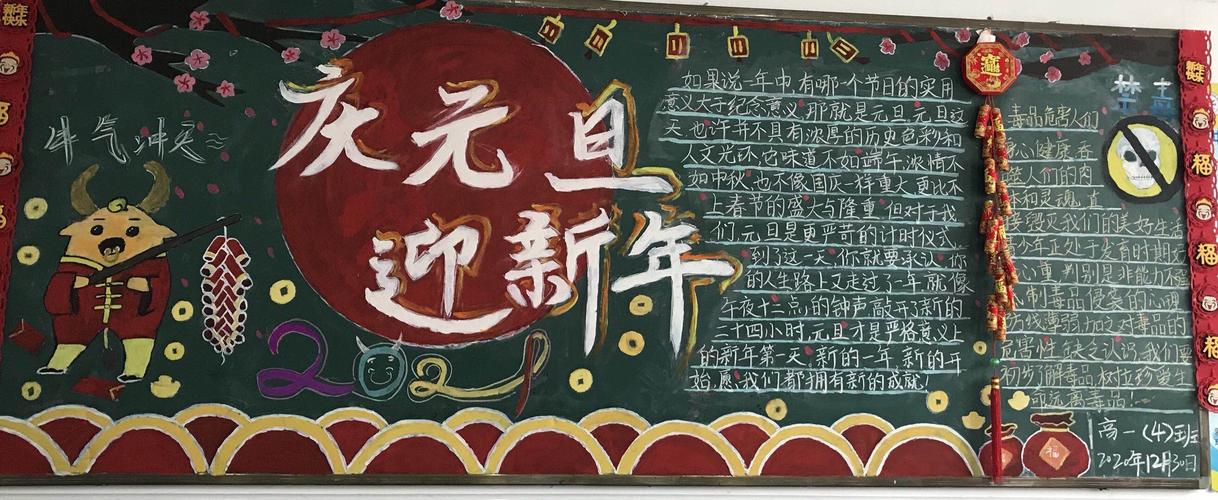 牛气冲天
庆元旦
迎新年
2021
如果说一年中,有哪一个节日的实用
意义大于纪念意义,那就是元旦.元旦这
天,也许并不具有浓厚的历史色彩和
人文光环,它味道不如端午,浓情不
如中秋,也不像国庆一样重大,更比不
上春节的盛大与隆重,但对于我
们,元旦是更严苛的计时仪式.
到了这一天,你就要承认,你
的人生路上又走过了一年,就像
午夜十二点,的钟声敲开了新的
二十四小时,元旦才是严格意义上
的新年第一天,新的一年,新的开
始,愿,我们都拥有新的成就!
禁毒
毒品危害人们
身心健康,吞
噬人们的肉
体和灵魂,直
接毁灭我们的美好生活
青少年正处于发育时期,好
心重,判别是非能力不强
制毒品侵袭的心理
防线薄弱,加之对毒品的
危害性缺乏认识,我们要
初步了解毒品,树立珍爱生
命远离毒品!
福
福
福
福
高一(4)班
2020年12月30日